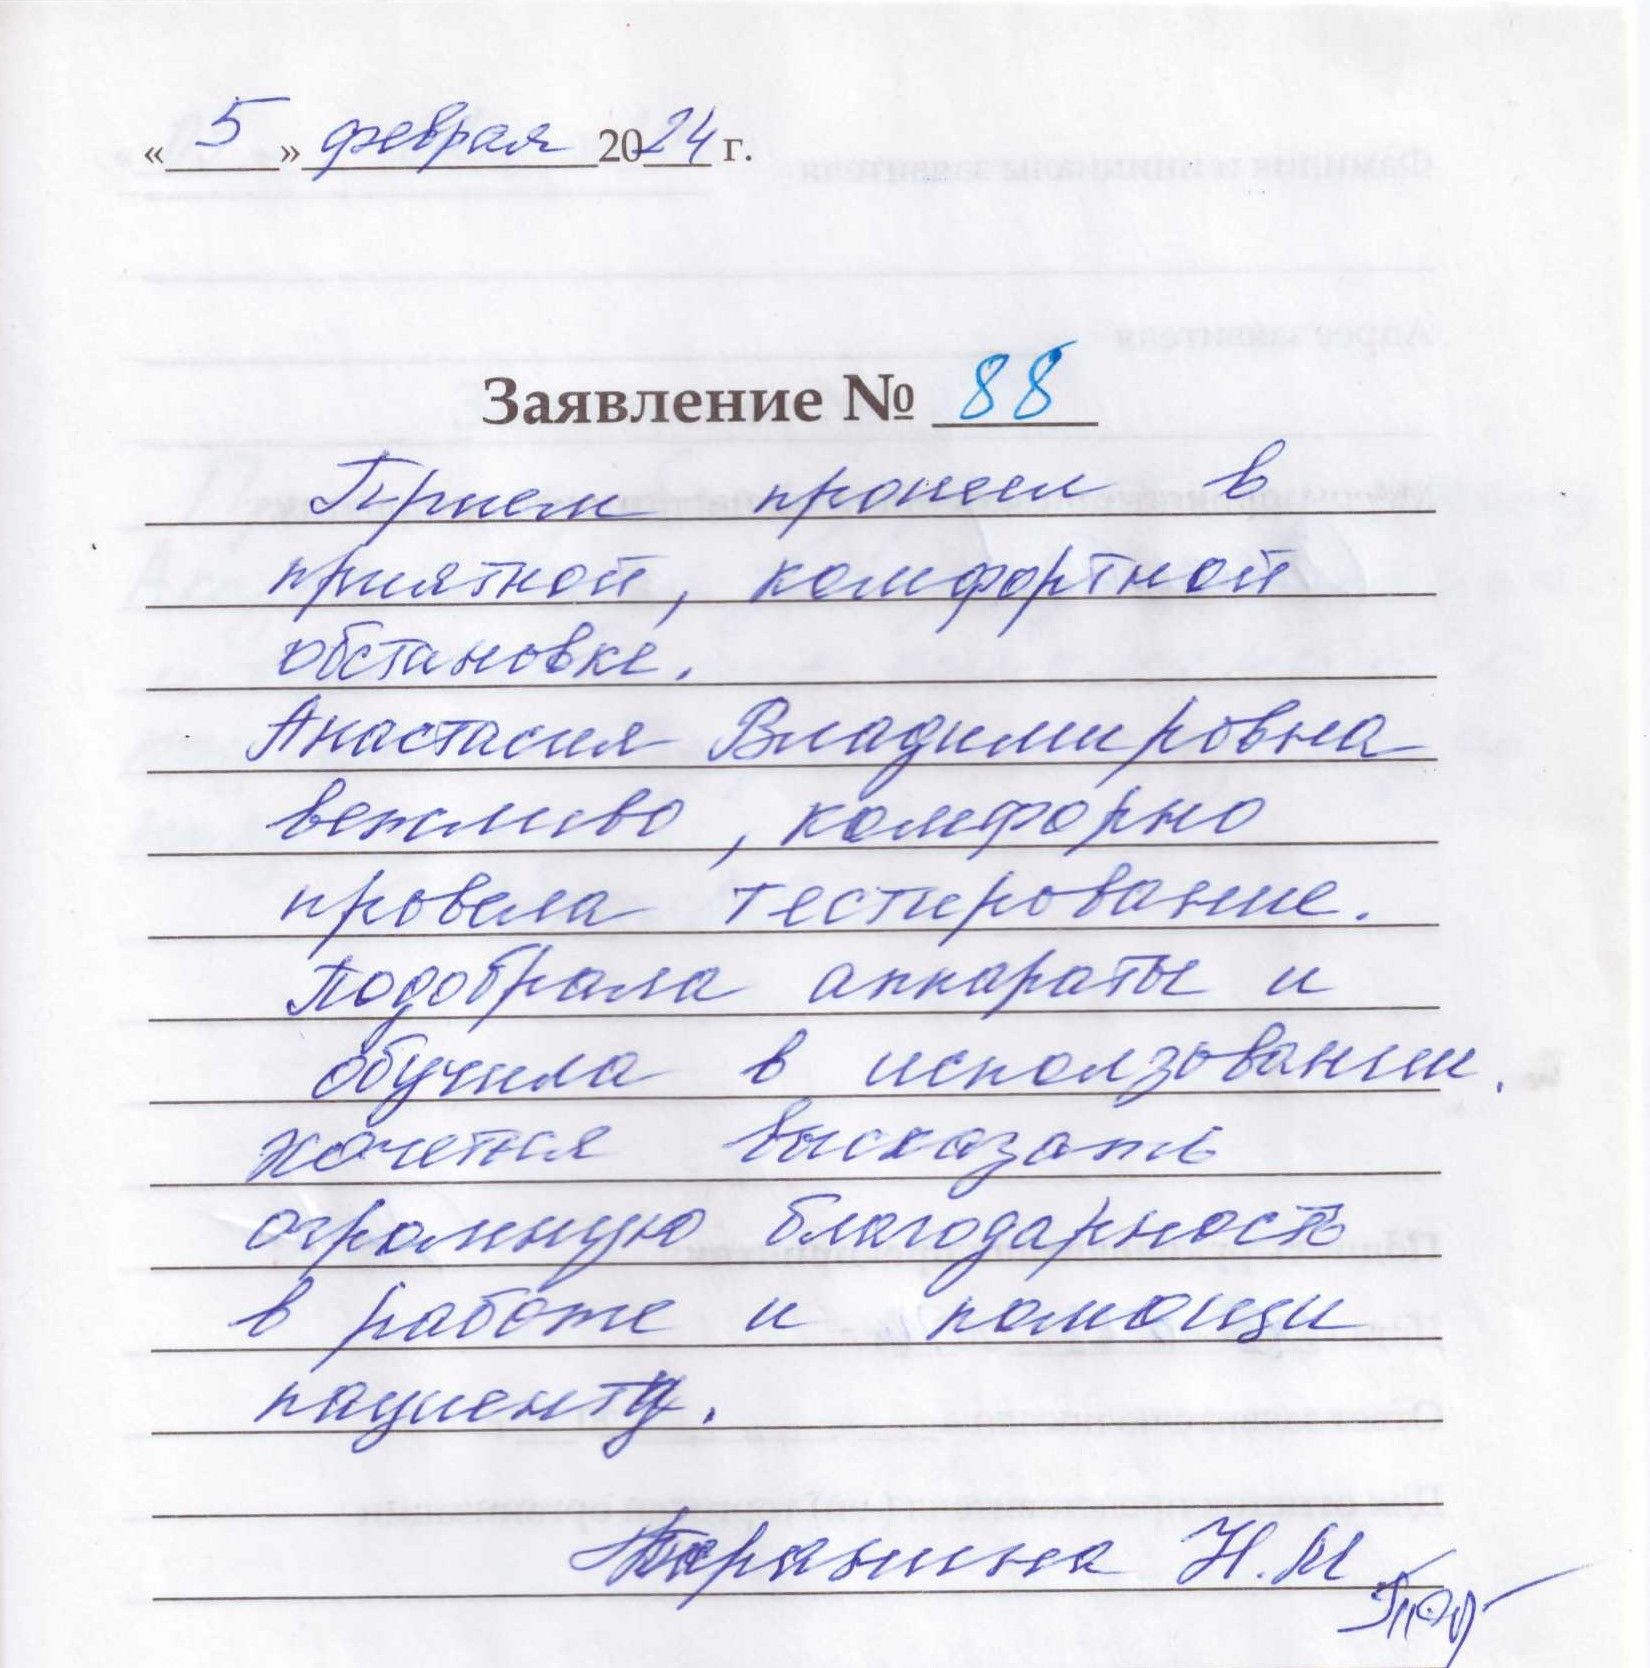 « 5 » февраля 2024 г.
Заявление № 88
Прием прошел в
приятной, комфортной
обстановке.
Анастасия Владимировна
вежливо, комфорно
провела тестирование.
Подобрала аппараты и
обучила в исползовании.
хочется высказать
огромную благодарность
в работе и помощи
пациенту.
Н.М